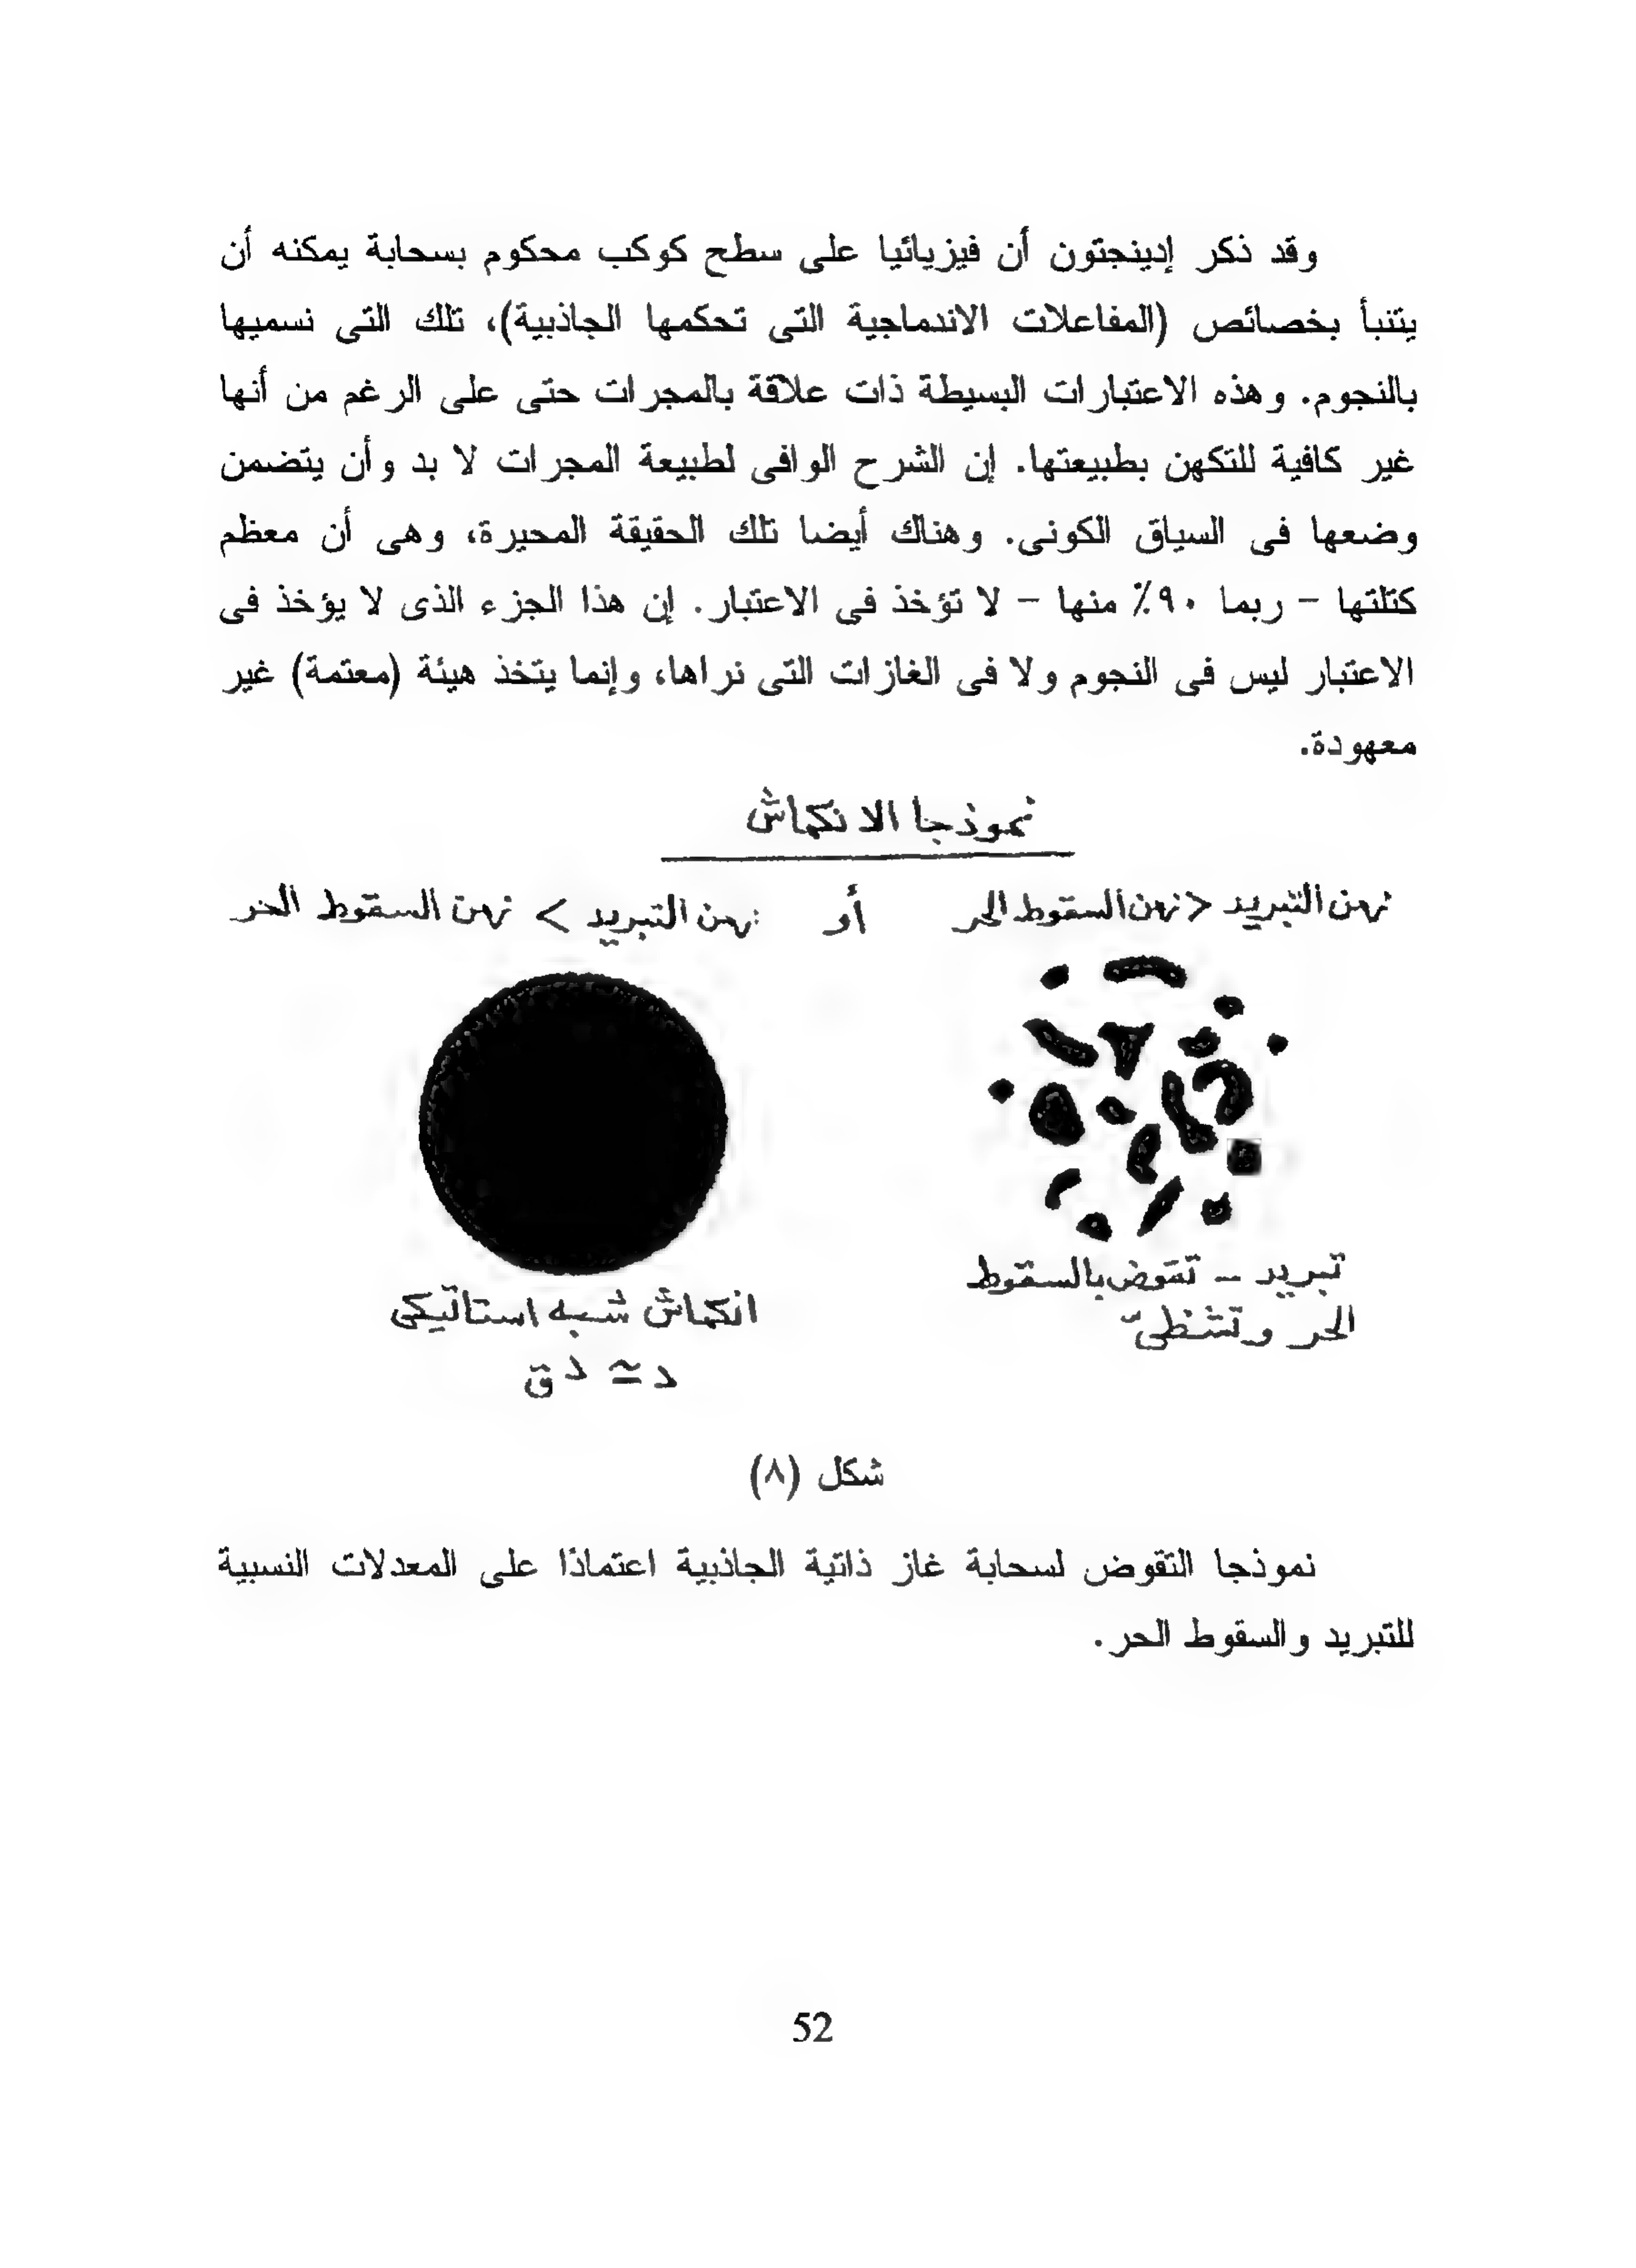 وقد ذكر إدينجتون أن فيزيائيا على سطح كوكب محكوم بسحابة يمكنه أن
يتنبأ بخصائص (المفاعلات الاندماجية التى تحكمها الجاذبية)، تلك التى نسميها
بالنجوم. وهذه الاعتبارات البسيطة ذات علاقة بالمجرات حتى على الرغم من أنها
غير كافية للتكهن بطبيعتها. إن الشرح الوافى لطبيعة المجرات لا بد وأن يتضمن
وضعها فى السياق الكونى. وهناك أيضا تلك الحقيقة المحيرة، وهى أن معظم
كتلتها – ربما ٩٠٪ منها – لا تؤخذ فى الاعتبار. إن هذا الجزء الذى لا يؤخذ فى
الاعتبار ليس فى النجوم ولا فى الغازات التى نراها، وإنما يتخذ هيئة (معتمة) غير
معهودة.
نموذجا الانكماش
زمن التبريد < زمن السقوط الحر أو زمن التبريد > زمن السقوط الحر
تبريد – تقوض بالسقوط
الحر وتشظى
انكماش شبه استاتيكى
د ≃ د ق
شكل (٨)
نموذجا التقوض لسحابة غاز ذاتية الجاذبية اعتمادًا على المعدلات النسبية
للتبريد والسقوط الحر.
52